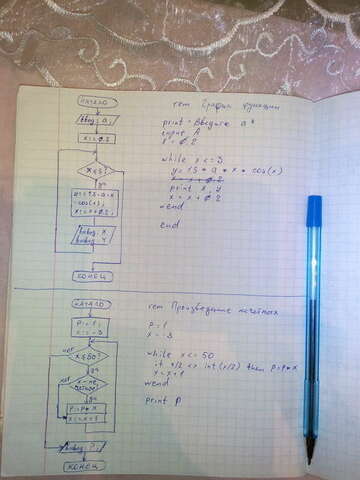 НАЧАЛО
Ввод: a;
x:=0,2
x≤3
да
-cos(x);
x:=x+0,2;
Вывод: X
Вывод: Y
КОНЕЦ
rem График функции
print "Введите a"
input A
x = 0,2
while x <= 3
y = 15 * a * x * cos(x)
x = x + 0,2
print x, y
x = x + 0.2
wend
end
НАЧАЛО
P:=1;
x:=-3
нет
x≤50
да
нет
x - не
да
P:=P*X
x:=x+1
Вывод: P;
КОНЕЦ
rem Произведение нечётных
P = 1
x = -3
while x <= 50
if x/2 <> int(x/2) then p=p*x
x = x+1
wend
print P